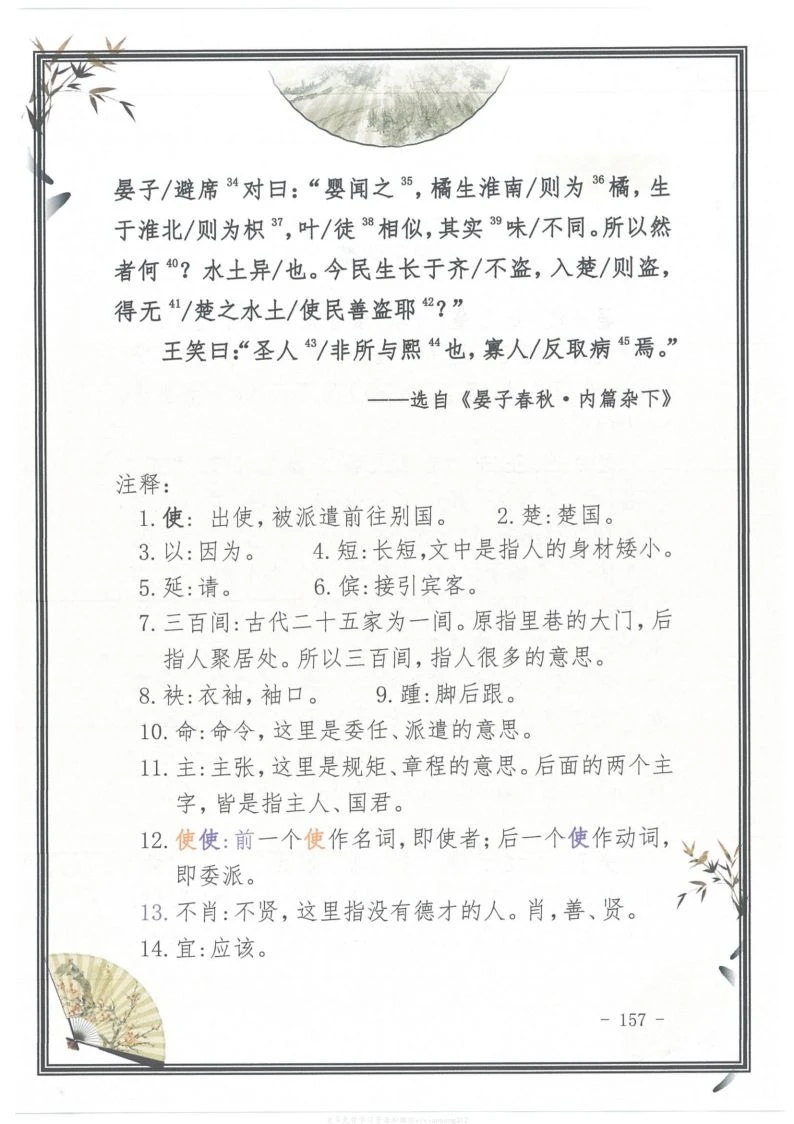 晏子/避席34对曰：“婴闻之35，橘生淮南/则为36橘，生
于淮北/则为枳37，叶/徒38相似，其实39味/不同。所以然
者何40？水土异/也。今民生长于齐/不盗，入楚/则盗，
得无41/楚之水土/使民善盗耶42？”
王笑曰：“圣人43/非所与熙44也，寡人/反取病45焉。”
——选自《晏子春秋·内篇杂下》
注释：
1.使：出使，被派遣前往别国。 2.楚：楚国。
3.以：因为。 4.短：长短，文中是指人的身材矮小。
5.延：请。 6.傧：接引宾客。
7.三百闾：古代二十五家为一闾。原指里巷的大门，后
指人聚居处。所以三百闾，指人很多的意思。
8.袂：衣袖，袖口。 9.踵：脚后跟。
10.命：命令，这里是委任、派遣的意思。
11.主：主张，这里是规矩、章程的意思。后面的两个主
字，皆是指主人、国君。
12.使使：前一个使作名词，即使者；后一个使作动词，
即委派。
13.不肖：不贤，这里指没有德才的人。肖，善、贤。
14.宜：应该。
- 157 -